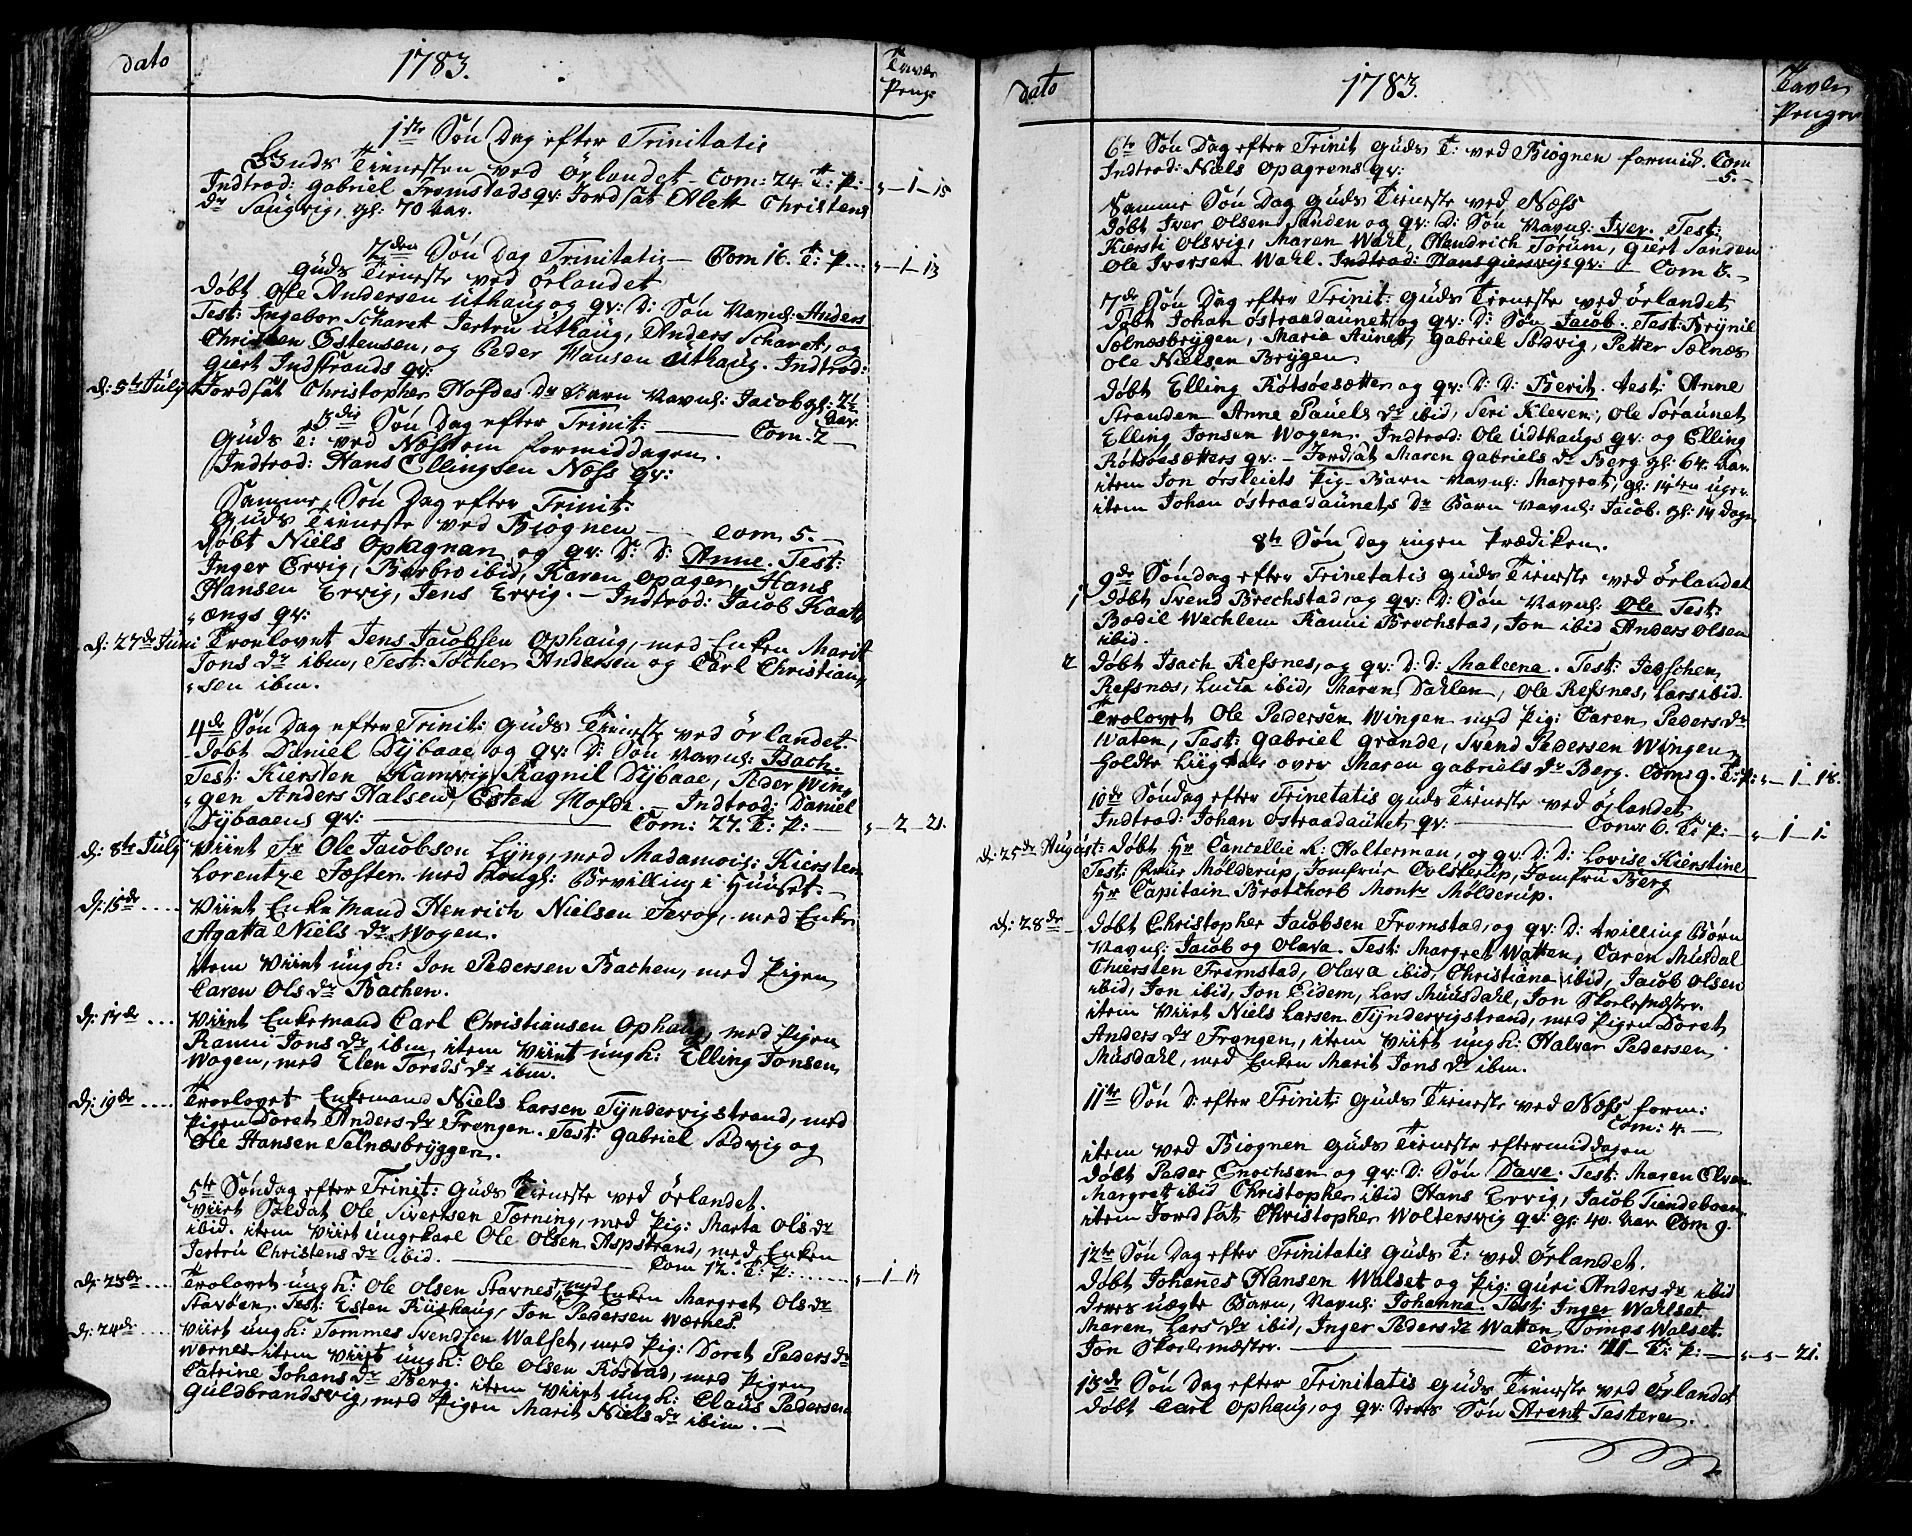 Dato
1783.
Tavle
Peng:
1te Søn Dag efter Trinitatis
Guds Tienesten ved Ørlandet Com: 24. T: P: „ – 1 – 15
Indtrod: Gabriel Fromstads qv: Jordfat Alett Christens
Dr Saugvig, gl: 70 aar.
2den Søn Dag Trinitatis – Com 16. T: P. „ – 1 – 13
Guds Tieneste ved Ørlandet
Døbt Ole Andersen Uthaug og qv: D: Søn Navnl: Anders
Test: Ingebor Scharet Jertru Uthaug, Anders Scharet, og
Christen Estensen, og Peder Hansen Uthaug. Indtrod:
Giert Indstrands qv:
d: 5te Julÿ Jordfat Christopher Hofdes Dr Barn Navnl: Jacob gl: 2½
aar.
3die Søn Dag efter Trinit: Com: 2 –
Guds T: ved Næss om formiddagen.
Indtrod: Hans Ellingsen Næss qv:
Samme Søn Dag efter Trinit:
Guds Tieneste ved Biognen – Com 5. –
Døbt Niels Ophagnan og qv: D: D: Anne. Test:
Inger Ervig, Barbro ibid, Karen Opager, Hans
Hansen Ervig, Jens Ervig. – Indtrod: Jacob Kaatt
„ængs qv:
d: 27de Juni Trorlovet Jens Jacobsen Ophaug, med Enken Marit
Jons Dr ibm, Test: Tocher Andersen og Carl Christian„
„sen ibm.
4de Søn Dag efter Trinit: Guds Tieneste ved Ørlandet.
Døbt Daniel Dÿbaae og qv: D: Søn Navnl: Isach.
Test: Kiersten Hamvig, Ragnil Dÿbaae, Peder Win„
„gen Anders Halsen, Esten Hofde. – Indtrod: Daniel
Dÿbaaens qv: Com: 27. T: P: – „ – 2 – 21.
d: 8te Julÿ Viiet Sr Ole Jacobsen Lÿng, med Madamois: Kiersten
Lorentze Fæsten med Kongl: Bevilling i Huuset. –
d: 15de Viiet Enke Mand Henrich Nielsen Terog, med Enke
Agatta Niels Dr Wogen.
item Viiet ung k: Jon Pedersen Bachen, med Pigen
Caren Ols Dr Bachen.
d: 17de Viiet Enkemand Carl Christiansen Ophaug, med Pigen
Ranni Jons Dr ibm, item Viiet ung k: Elling Jonsen
Wogen, med Elen Tords Dr ibm.
d: 19de Trorlovet Enkemand Niels Larsen Tÿndervigstrand, med
Pigen Doret Anders Dr Frengen. Test: Gabriel Sødvig og
Ole Hansen Selnæsbrÿggen.
5te Søndag efter Trinit: Guds Tieneste ved Ørlandet.
Viiet Soldat Ole Sivertsen Tørning, med Pig: Marta Ols Dr
ibid. item Viiet ungekarl Ole Olsen Aspstrand, med Enken
Jertru Christens Dr ibid. Com 12. T: P: „ – 1 – 17
d: 23de Trolovet ung k: Ole Olsen Stavnes, med Enken Margret Ols Dr
Stavøen. Test: Esten Riishaug, Jon Pedersen Wærnes.
d: 24de Viiet ung k: Tommes Svendsen Walset, med Pig: Doret Peders Dr
Wærnes item Viiet ung k: Ole Olsen Røstad, med Pigen
Catrine Johans Dr Berg. item Viiet ung k: Claus Pedersen
Guldbrandsvig, med Pigen Marit Niels Dr ibm. –
Dato
1783.
Tavle
Penger
6te Søn Dag efter Trinit Guds T: ved Biognen formid. Com
Indtrod: Niels Opagrens qv: 5. –
Samme Søn Dag Guds Tieneste ved Næss
Døbt Iver Olsen Sanden og qv: D: Søn Navnl: Iver. Test:
Kiersti Olsvig, Maren Wahl, Hendrich Tørum, Giert Sanden
Ole Iversen Wahl. Indtrod: Hans Giersvigs qv: – Com 3. –
7de Søn Dag efter Trinit: Guds Tieneste ved Ørlandet
Døbt Johan Østraadaunet, og qv: D: Søn Jacob. Test: Brÿnil
Sælnæsbrÿgen, Maria Aunet, Gabriel Sødvig, Petter Sælnæs
Ole Nielsen Brÿgen
Døbt Elling Røtsøesætter og qv: D: D: Berit. Test: Anne
Stranden Anne Pauels Dr ibid, Seri Kleven, Ole Søraunet,
Elling Jonsen Wogen. Indtrod: Ole Udthaugs qv: og Elling
Røtsøesætters qv: – Jordfat Maren Gabriels Dr Berg gl: 64. aar.
item Jon Ørsleiets Pig-Barn Navnl: Margret, gl: 14ten uger.
item Johan Østraadaunets Dr Barn Navnl: Jacob. gl: 14 Dage
8te Søn Dag ingen Prædiken.
9de Søndag efter Trinetatis Guds Tieneste ved Ørlandet
1 Døbt Svend Brechstad, og qv: D: Søn Navnl: Ole Test:
Bodil Wechlem Ranni Brechstad, Jon ibid Anders Olsen
ibid.
2 Døbt Isach Refsnes, og qv: D: D: Maleena. Test: Iebschen
Refsnæs, Lucia ibid, Maren Dahlen, Ole Refsnes, Lars ibid.
Trolovet Ole Pedersen Wingen med Pig: Caren Peders Dr
Waten, Test: Gabriel Grande, Svend Pedersen Wingen
Holdte Liigtale over Maren Gabriels Dr Berg. Com: 9. T: P: „ – 1 – 18.
10de Søndag efter Trinetatis Guds Tieneste ved Ørlandet
Indtrod: Johan Østraadaunet qv: Com: 6. T: P: – „ – 1 – 1.
d: 25de August: Døbt Hr Cancellie R: Holterman, og qv: D: D: Lovise Kierstine
Test: Frue Mølderup, Jomfrue Ovlsterup, Jomfru Berg
Hr Capitain Brotchorb Monsr Mølderup.
d: 28de Døbt Christopher Jacobsen Fromstad, og qv: D: tvilling Børn
Navnl: Jacob og Olava. Test: Margret Watten, Caren Musdal
Chiersten Fromstad, Olava ibid, Christiana ibid, Jacob Olsen
ibid, Jon ibid, Jon Eidem, Lars Muusdahl, Jon Skolemæster.
item Viiet Niels Larsen Tÿndervigstrand, med Pigen Doret
Anders Dr Frengen, item Viiet ung k: Halvor Pedersen
Musdahl, med Enken Marit Jons Dr ibm.
11te Søn D: efter Trinit: Guds Tieneste ved Næss form:
Com: 4. –
item ved Biognen Guds Tieneste eftermiddagen
Døbt Peder Enochsen og qv: D: Søn Dave. Test: Maren Elven
Margret ibid Christopher ibid Hans Ervig, Jacob Tiendeboen
item Jordfat Christopher Woltersvig qv: gl: 40. aar Com 9.
12te Søn Dag efter Trinitatis Guds T: ved Ørlandet.
Døbt Johannes Hansen Walset og Pig: Guri Anders Dr ibid
Deres uægte Barn, Navnl: Johanna. Test: Inger Wahlset
Maren Lars Dr ibid, Inger Peders Dr Watten, Tomes Walset.
Jon Skolemæster. Com: 21 – T: P: – „ – „ – 21.
13de Søn Dag efter Trinitatis Guds Tieneste ved Ørlandet
Døbt Carl Ophaug, og qv: Deres Søn Arent Testere.